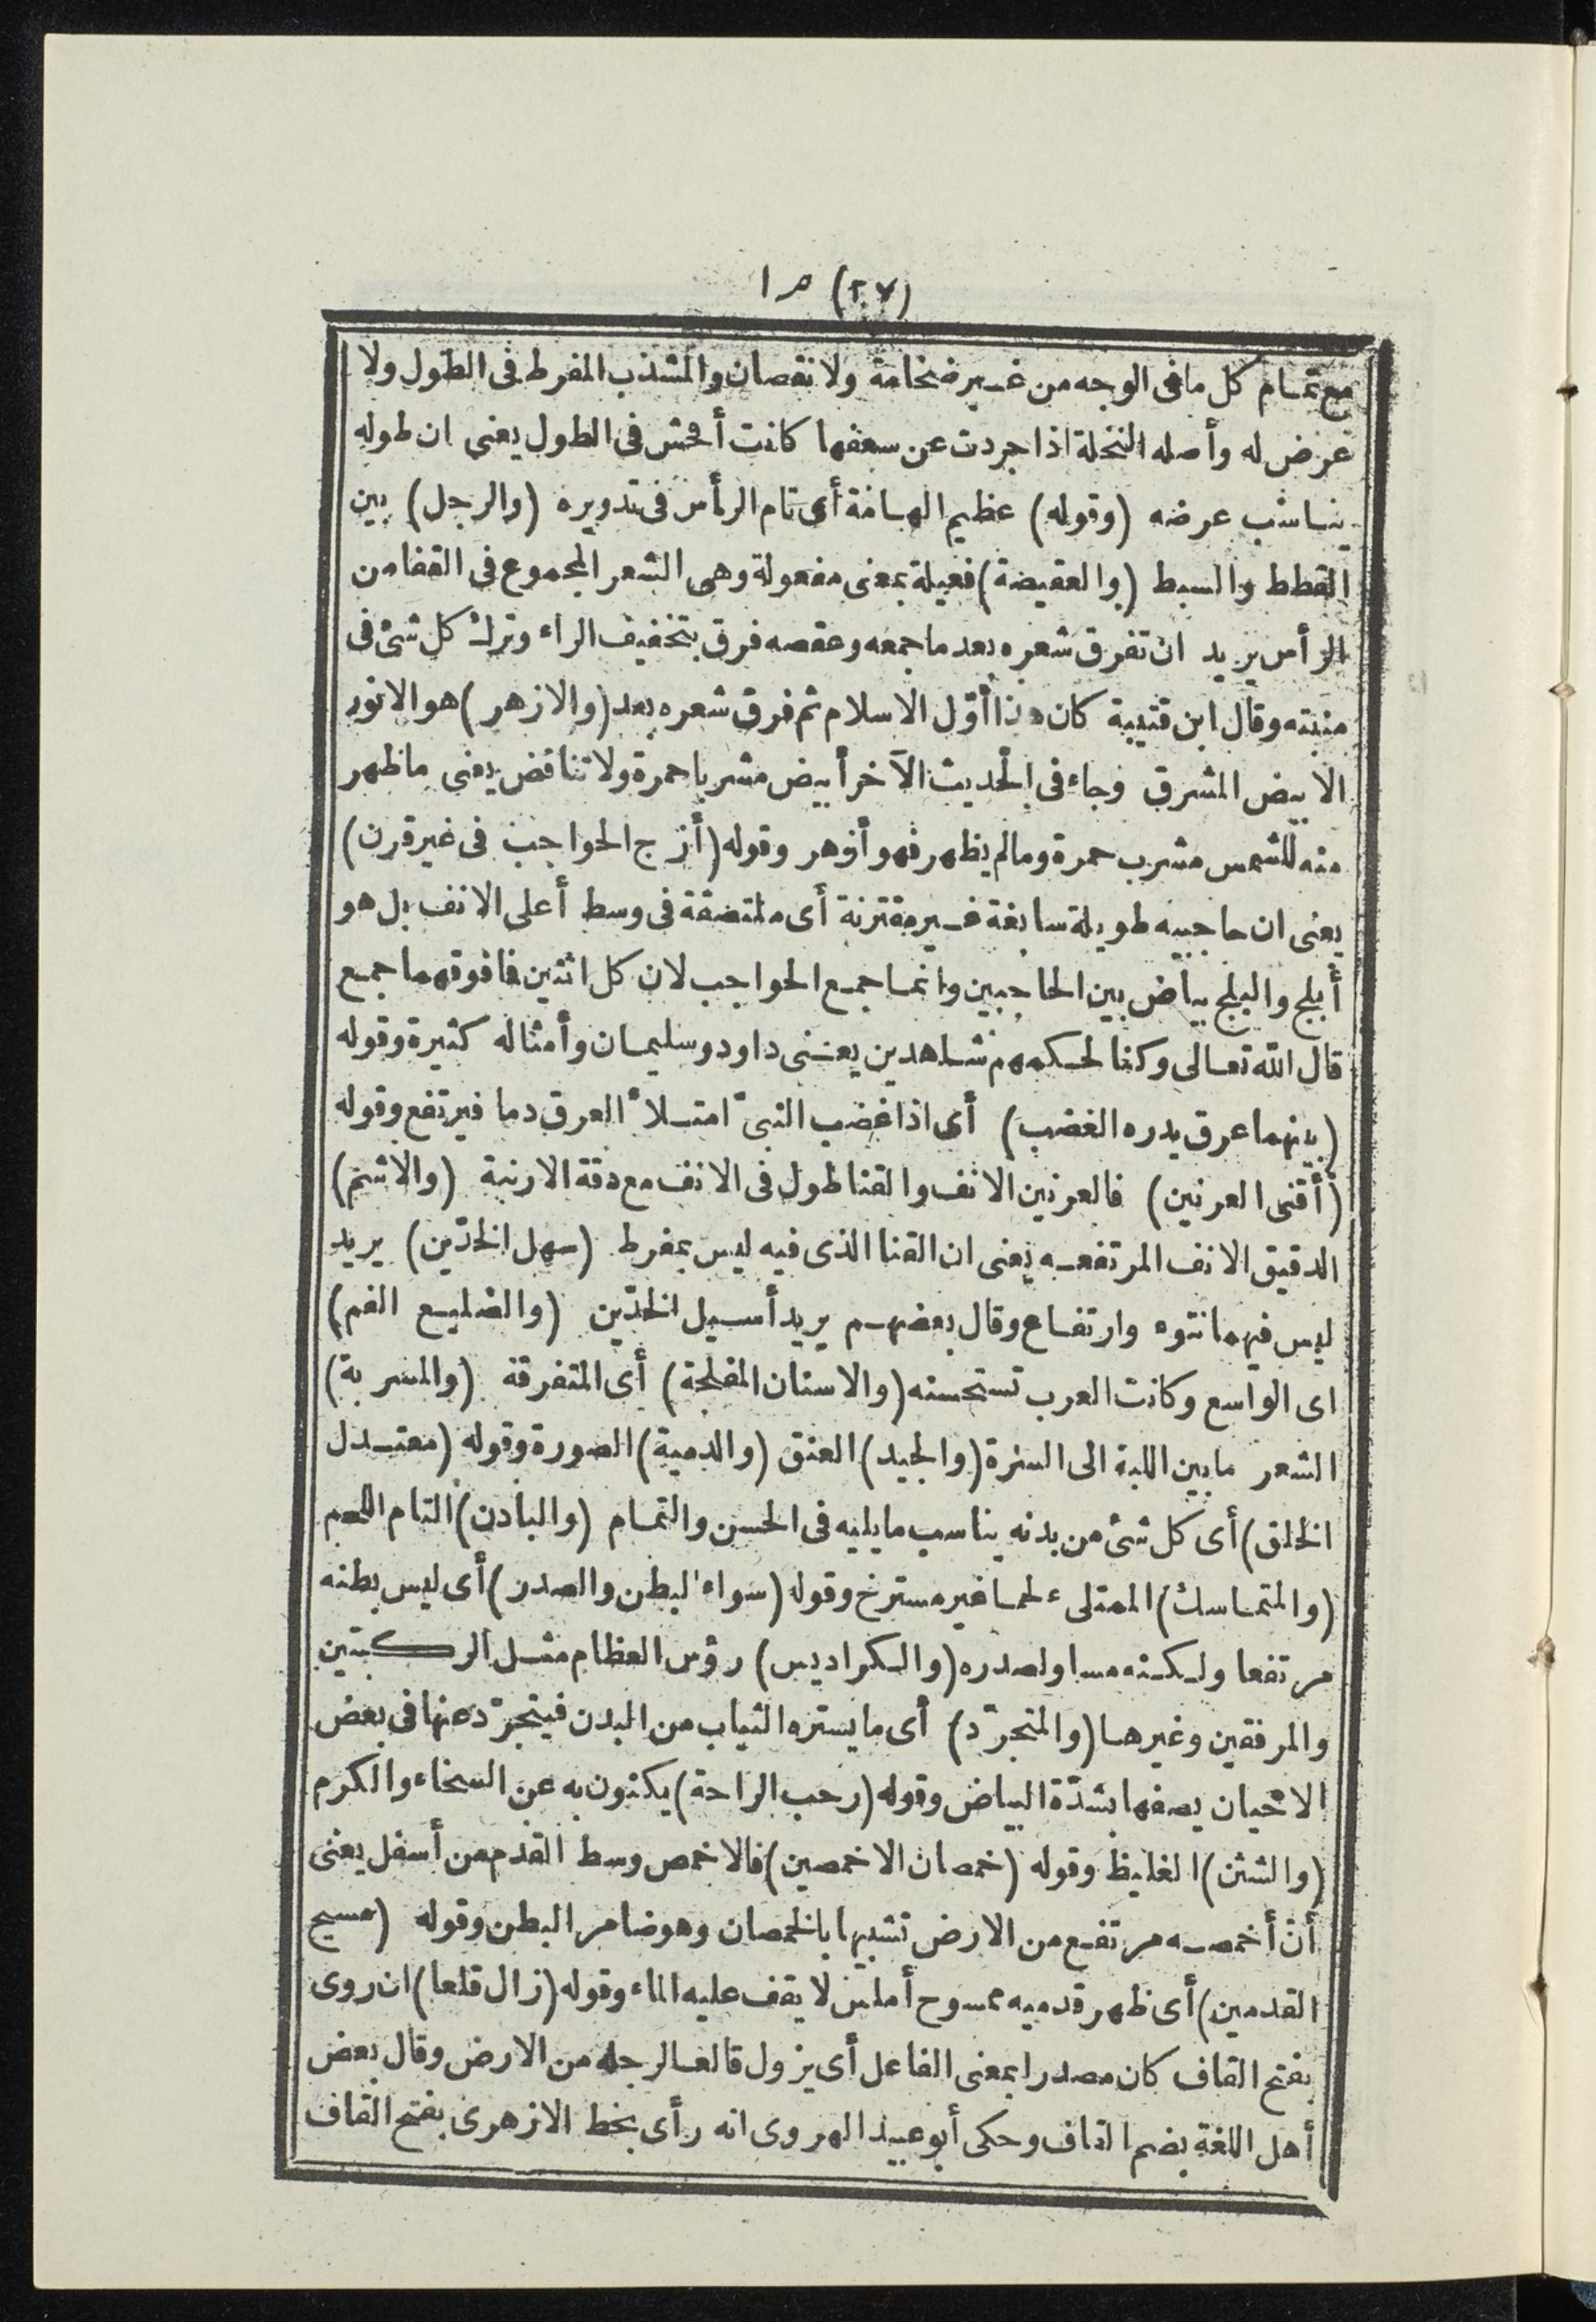 (٢٧)
مع تمام كل ما فى الوجه من غير ضخامة ولا نقصان والمشذب المفرط فى الطول ولا
عرض له وأصله النخلة اذا جردت عن سعفها كانت أفحش فى الطول يعنى ان طوله
يناسب عرضه (وقوله) عظيم الهامة أى تام الرأس فى تدويره (والرجل) بين
القطط والسبط (والعقيصة) فعيلة بمعنى مفعولة وهى الشعر المجموع فى القفا من
الرأس يريد ان تفرق شعره بعد ما جمعه وعقصه فرق بتخفيف الراء وترك كل شئ فى
منبته وقال ابن قتيبة كان هذا أوّل الاسلام ثم فرق شعره بعد (والازهر) هو الانور
الابيض المشرق وجاء فى الحديث الآخر أبيض مشربا حمرة ولا تناقض يعنى ما ظهر
منه للشمس مشرب حمرة وما لم يظهر فهو أزهر وقوله (أزج الحواجب فى غير قرن)
يعنى ان حاجبيه طويلة سابغة غير مقترنة أى ملتصقة فى وسط أعلى الانف بل هو
أبلج والبلج بياض بين الحاجبين وانما جمع الحواجب لان كل اثنين فا فوقهما جمع
قال الله تعالى وكنا لحكمهم شاهدين يعنى داود وسليمان وأمثاله كثيرة وقوله
(بينهما عرق يدره الغضب) أى اذا غضب النبىّ امتلأ العرق دما فيرتفع وقوله
(أقنى العرنين) فالعرنين الانف والقنا طول فى الانف مع دقة الارنبة (والاشم)
الدقيق الانف المرتفعه يعنى ان القنا الذى فيه ليس بمفرط (سهل الخدّين) يريد
ليس فيهما نتوء وارتفاع وقال بعضهم يريد أسيل الخدّين (والضليع الفم)
اى الواسع وكانت العرب تستحسنه (والاسنان المفلجة) أى المتفرقة (والمسربة)
الشعر ما بين اللبة الى السرة (والجيد) العنق (والدمية) الصورة وقوله (معتدل
الخلق) أى كل شئ من بدنه يناسب ما يليه فى الحسن والتمام (والبادن) التام اللحم
(والمتماسك) الممتلىء لحما غير مسترخ وقوله (سواء البطن والصدر) أى ليس بطنه
مرتفعا ولكنه مساو لصدره (والكراديس) رؤس العظام مثل الركبتين
والمرفقين وغيرها (والمتجرّد) أى ما يستره الثياب من البدن فيتجرّد عنها فى بعض
الاحيان يصفها بشدّة البياض وقوله (رحب الراحة) يكنون به عن السخاء والكرم
(والشثن) الغليظ وقوله (خمصان الاخمصين) فالاخمص وسط القدم من أسفل يعنى
أن أخمصه مرتفع من الارض تشبيها بالخمصان وهو ضامر البطن وقوله (مسيح
القدمين) أى ظهر قدميه ممسوح أملس لا يقف عليه الماء وقوله (زال قلعا) ان روى
بفتح القاف كان مصدرا بمعنى الفاعل أى يزول قالعا لرجله من الارض وقال بعض
أهل اللغة بضم القاف وحكى أبو عبيد الهروى انه رأى بخط الازهرى بفتح القاف